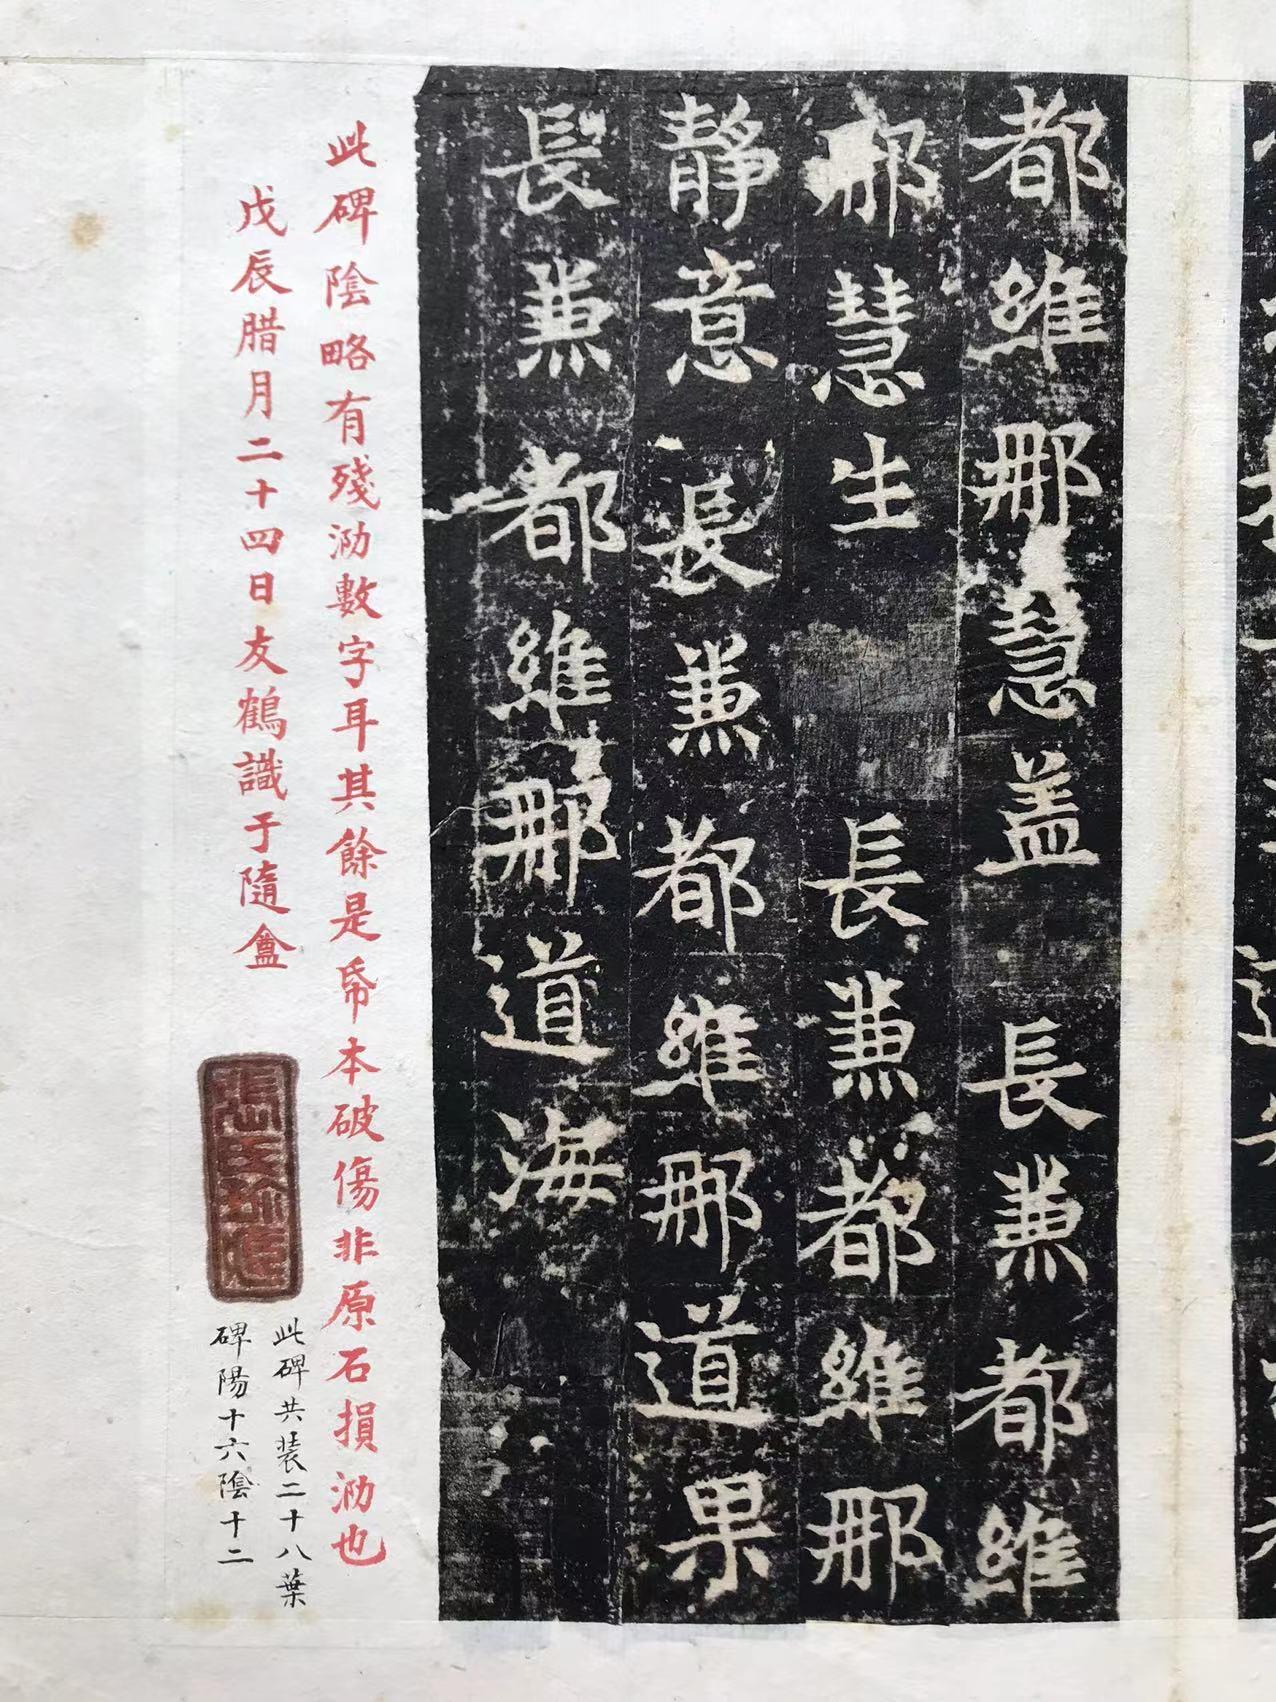 都維那慧蓋 長兼都維
那慧生 長兼都維那
靜意 長兼都維那道果
長兼都維那道海
此碑陰略有殘泐數字耳其餘是帋本破傷非原石損泐也
戊辰腊月二十四日友鶴識于隨盦
此碑共裝二十八葉
碑陽十六陰十二